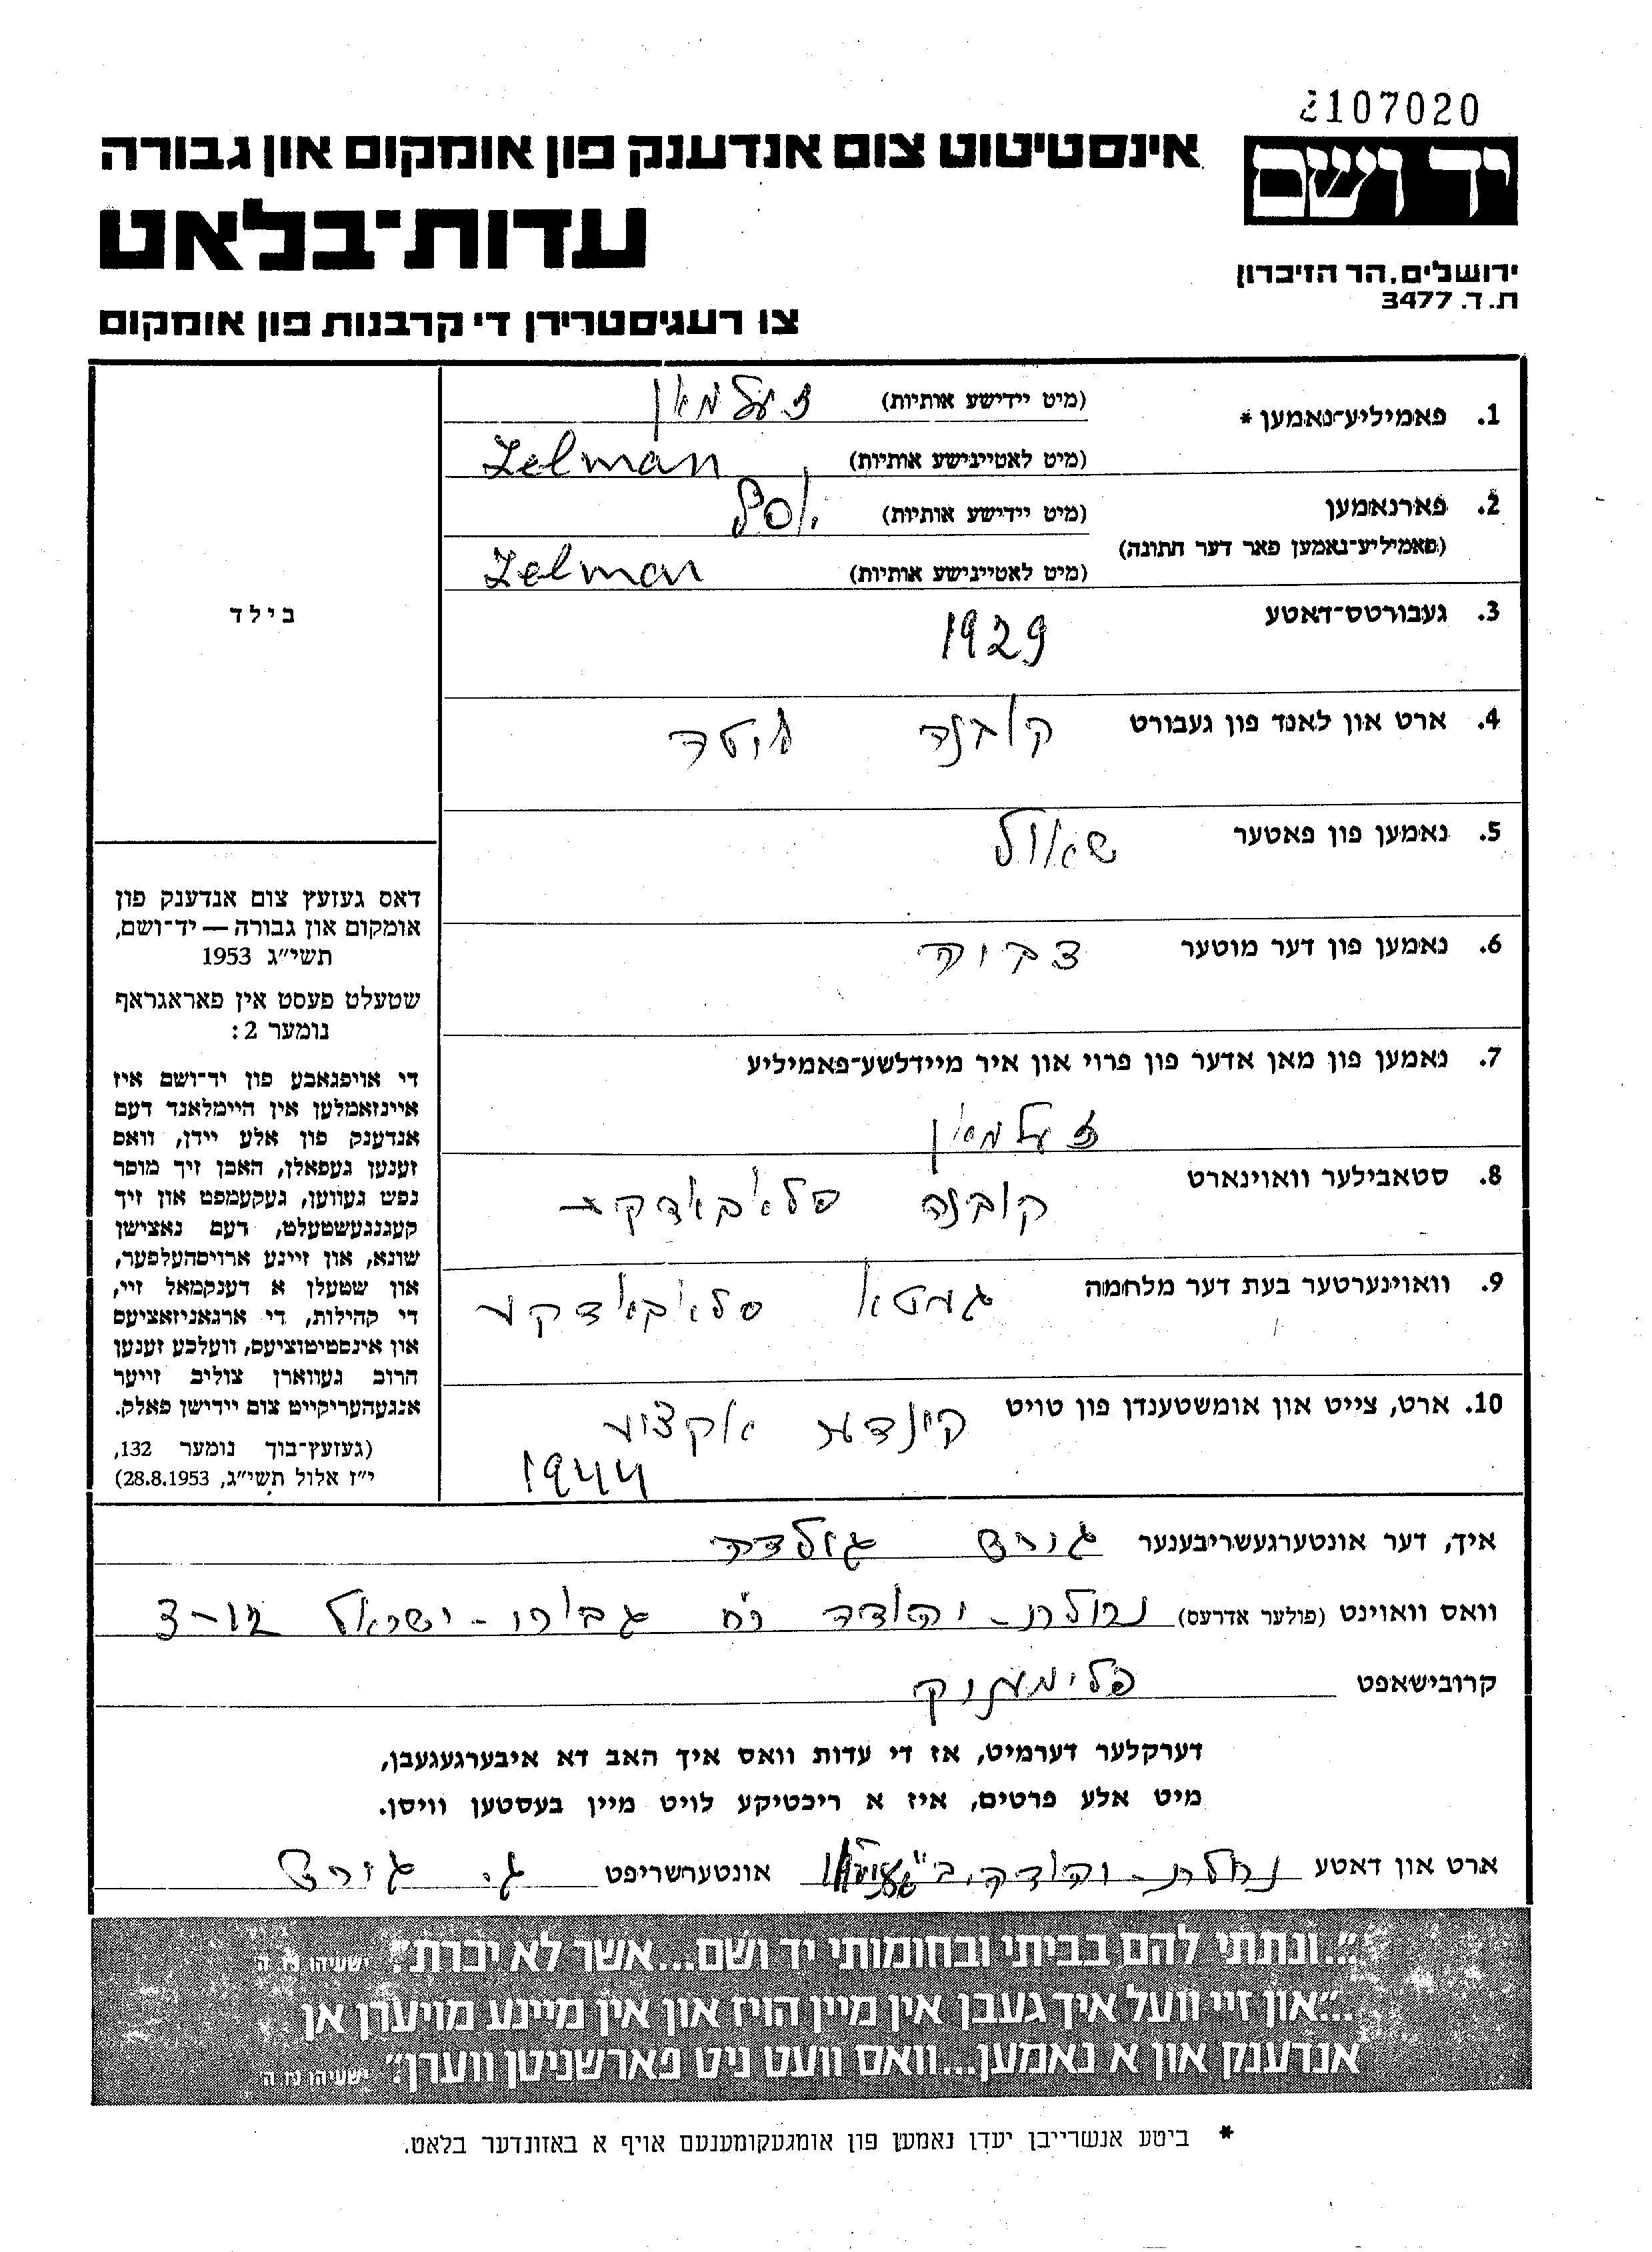 2107020
יד ושם
אינסטיטוט צום אנדענק פון אומקום און גבורה
עדות־בלאט
ירושלים, הר הזיכרון
ת. ד. 3477
צו רעגיסטרירן די קרבנות פון אומקום
1. פאמיליע־נאמען * (מיט יידישע אותיות) זעלמאן
(מיט לאטיינישע אותיות) Zelman
2. פארנאמען (מיט יידישע אותיות) יוסף
(פאמיליע־נאמען פאר דער חתונה)
(מיט לאטיינישע אותיות) Zelman
בילד
3. געבורטס־דאטע 1929
4. ארט און לאנד פון געבורט קובנה ליטה
5. נאמען פון פאטער שאול
6. נאמען פון דער מוטער
7. נאמען פון מאן אדער פון פרוי און איר מיידלשע־פאמיליע
זעלמאן
8. סטאבילער וואוינארט קובנה סלאבאדקע
9. וואוינערטער בעת דער מלחמה געטא סלאבאדקע
10. ארט, צייט און אומשטענדן פון טויט קינדער אקציע
1944
דאס געזעץ צום אנדענק פון
אומקום און גבורה — יד־ושם,
תשי״ג 1953
שטעלט פעסט אין פאראגראף
נומער 2:
די אויפגאבע פון יד־ושם איז
איינזאמלען אין היימלאנד דעם
אנדענק פון אלע יידן, וואס
זענען געפאלן, האבן זיך מוסר
נפש געווען, געקעמפט און זיך
קעגנגעשטעלט, דעם נאצישן
שונא, און זיינע ארויסהעלפער,
און שטעלן א דענקמאל זיי,
די קהילות, די ארגאניזאציעס
און אינסטיטוציעס, וועלכע זענען
חרוב געווארן צוליב זייער
אנגעהעריקייט צום יידישן פאלק.
(געזעץ־בוך נומער 132,
י״ז אלול תשי״ג, 28.8.1953)
איך, דער אונטערגעשריבענער גורט גולדה
וואס וואוינט (פולער אדרעס) נחלת־יהודה רח גבורי־ישראל 3־
קרובישאפט פלימעניק
דערקלער דערמיט, אז די עדות וואס איך האב דא איבערגעגעבן,
מיט אלע פרטים, איז א ריכטיקע לויט מיין בעסטען וויסן.
ארט און דאטע נחלת־יהודה אונטערשריפט ג. גורט
״...ונתתי להם בביתי ובחומותי יד ושם...אשר לא יכרת״. ישעיהו נו ה
״...און זיי וועל איך געבן אין מיין הויז און אין מיינע מויערן אן
אנדענק און א נאמען...וואס וועט ניט פארשניטן ווערן״. ישעיהו נו ה
* ביטע אנשרייבן יעדן נאמען פון אומגעקומענעם אויף א באזונדער בלאט.